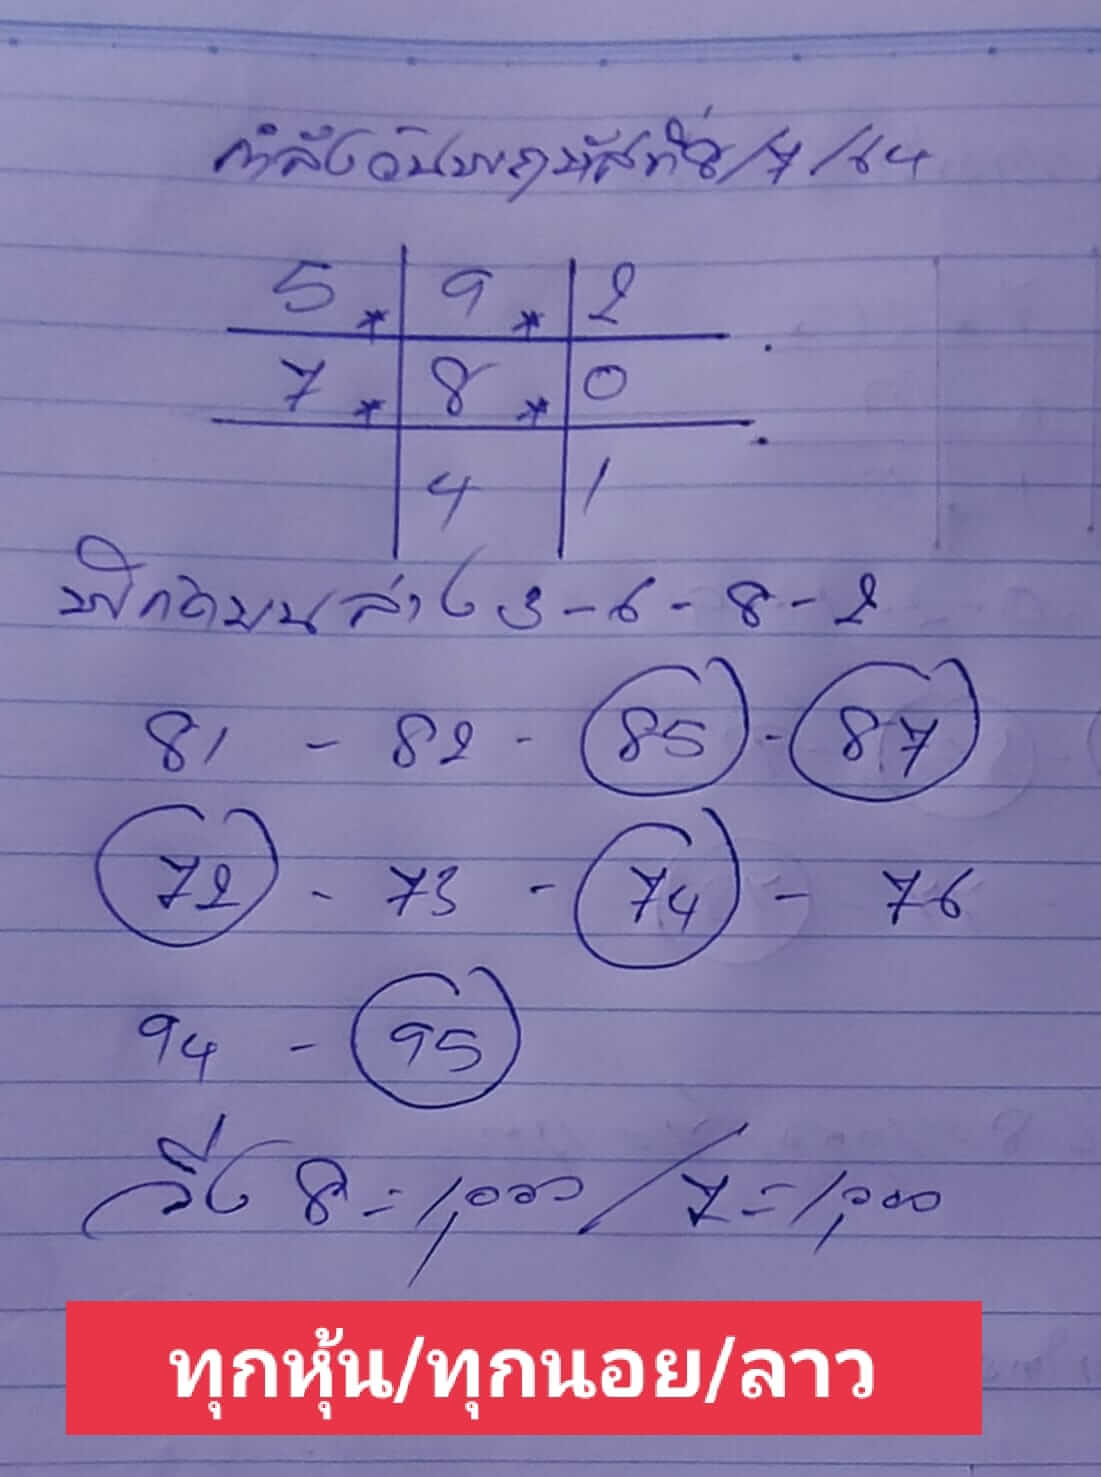 กำลังวันพฤหัสที่8/7/64
5 * 9 * 2
7 * 8 * 0
4 1
พิกัดบนล่าง 3-6-8-2
81 - 82 - 85 - 87
72 - 73 - 74 - 76
94 - 95
วิ่ง 8=1,000/7=1,000
ทุกหุ้น/ทุกนอย/ลาว